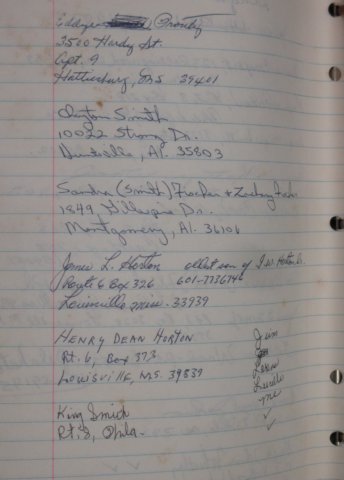 3500 Hardy St.
Apt. 9
Hattiesburg, MS 39401
Clayton Smith
10022 Strong Dr.
Huntsville, Al. 35803
Sandra (Smith) + Zachary
1849 Gillespie Dr.
Montgomery, Al. 36106
James L. Horton oldest son of J.W. Horton Sr.
Route 6 Box 326 601-7736746
Louisville Miss. 33939
HENRY DEAN HORTON
Rt. 6, Box 373
LOUISVILLE, MS. 39339
King Smith
Rt. 8, Phila.
Jim
Lucille
me
✓
✓